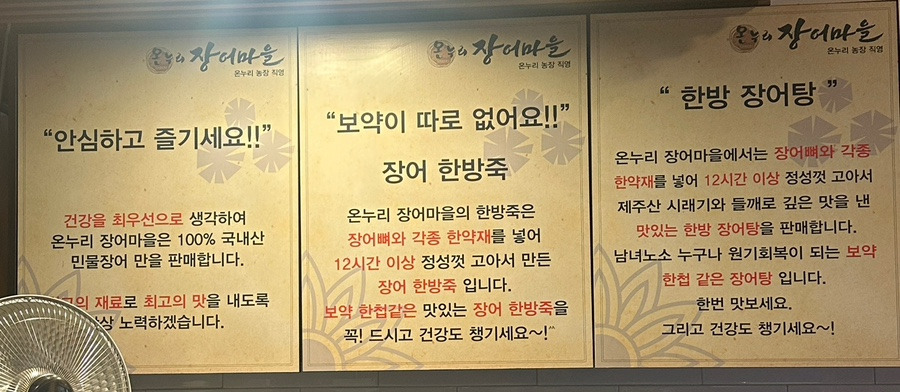 온누리 장어마을
온누리 농장 직영
“안심하고 즐기세요!!”
건강을 최우선으로 생각하여
온누리 장어마을은 100% 국내산
민물장어 만을 판매합니다.
재료로 최고의 맛을 내도록
노력하겠습니다.
온누리 장어마을
온누리 농장 직영
“보약이 따로 없어요!!”
장어 한방죽
온누리 장어마을의 한방죽은
장어뼈와 각종 한약재를 넣어
12시간 이상 정성껏 고아서 만든
장어 한방죽 입니다.
보약 한첩같은 맛있는 장어 한방죽을
꼭! 드시고 건강도 챙기세요~!^^
온누리 장어마을
온누리 농장 직영
“ 한방 장어탕 ”
온누리 장어마을에서는 장어뼈와 각종
한약재를 넣어 12시간 이상 정성껏 고아서
제주산 시래기와 들깨로 깊은 맛을 낸
맛있는 한방 장어탕을 판매합니다.
남녀노소 누구나 원기회복이 되는 보약
한첩 같은 장어탕 입니다.
한번 맛보세요.
그리고 건강도 챙기세요~!